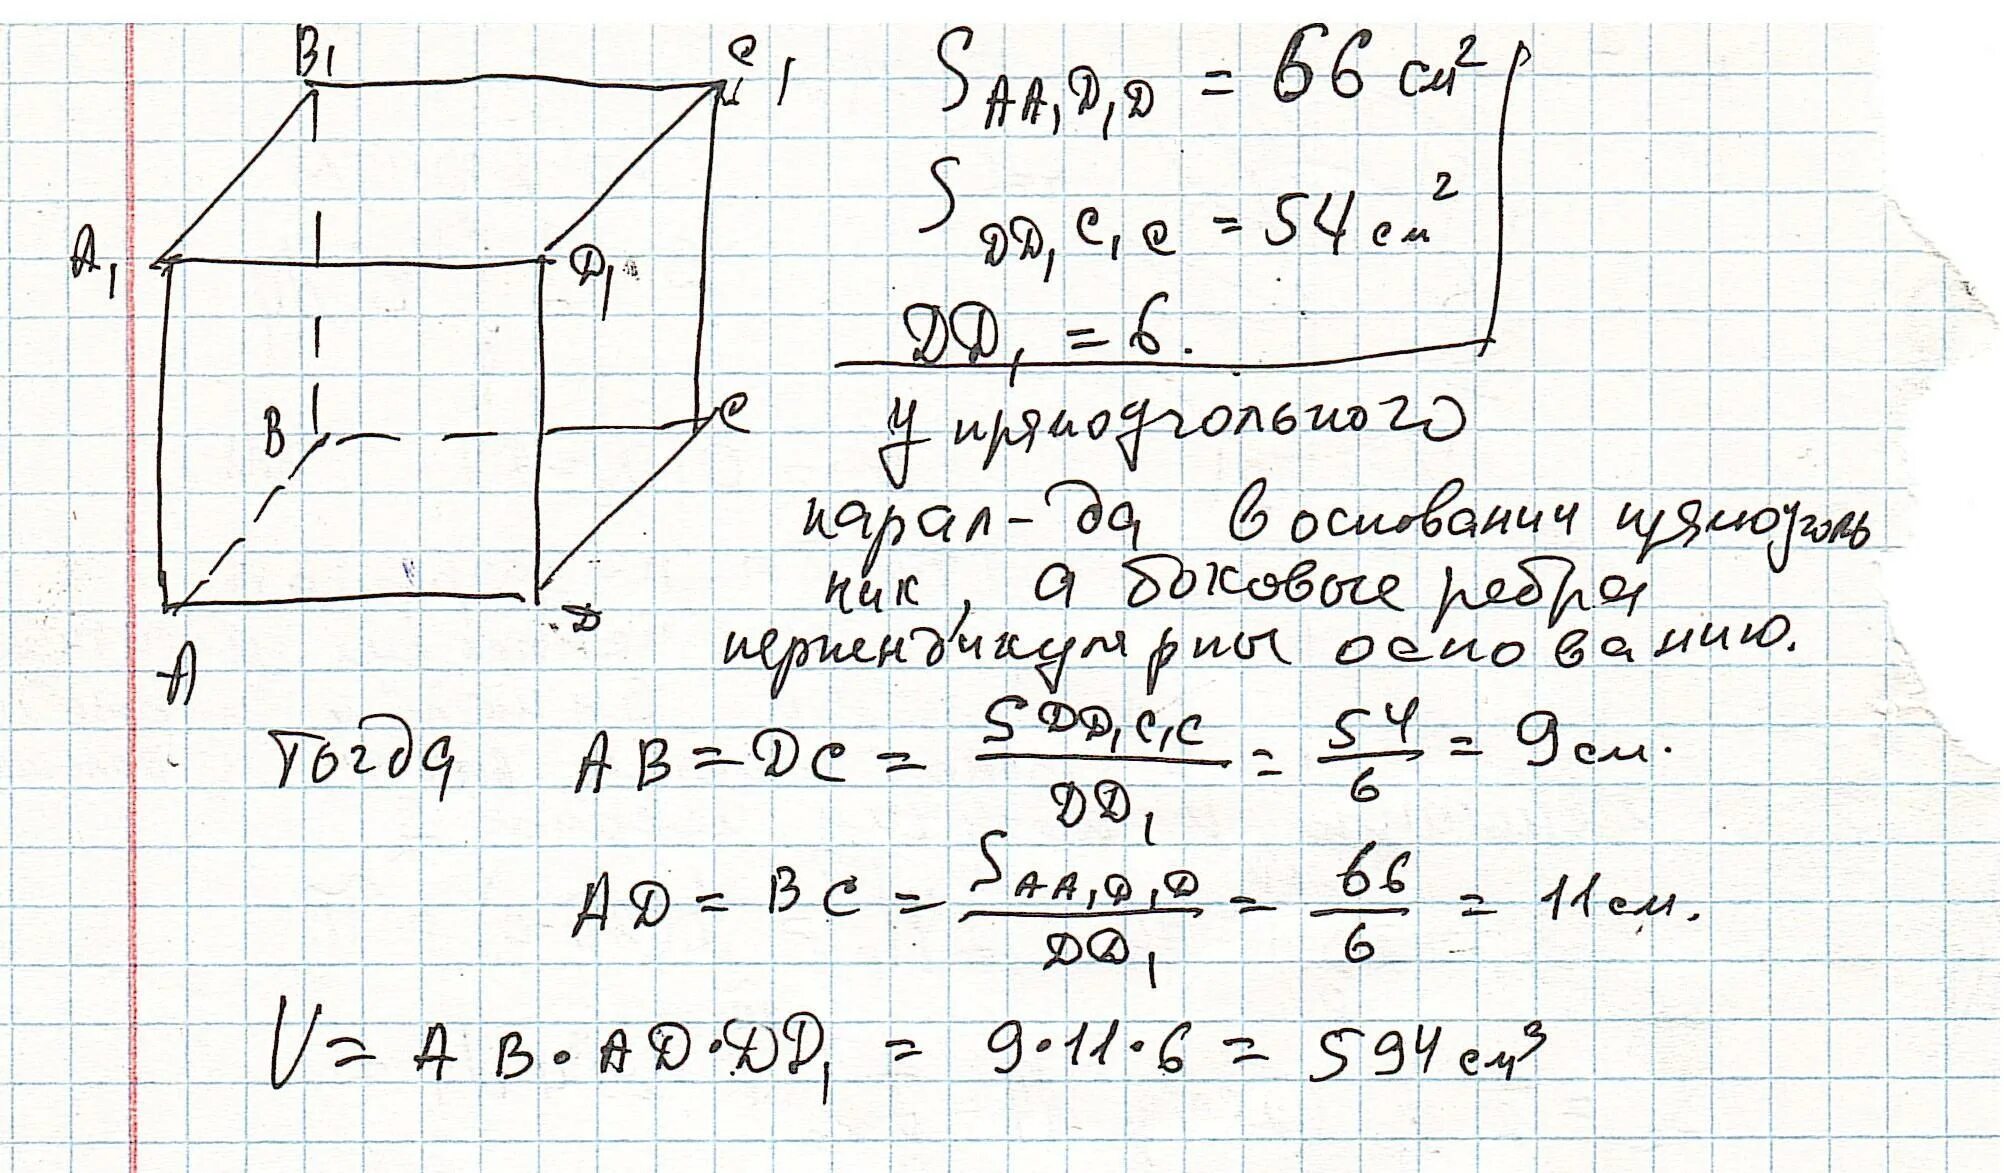 B₁
C₁
A₁
D₁
B
C
A
D
S AA₁D₁D = 66 см²
S DD₁C₁C = 54 см²
DD₁ = 6.
У прямоугольного
парал-да в основании прямоуголь
ник, а боковые ребра
перпендикулярны основанию.
Тогда AB = DC = S DD₁C₁C / DD₁ = 54/6 = 9 см.
AD = BC = S AA₁D₁D / DD₁ = 66/6 = 11 см.
V = AB · AD · DD₁ = 9 · 11 · 6 = 594 см³